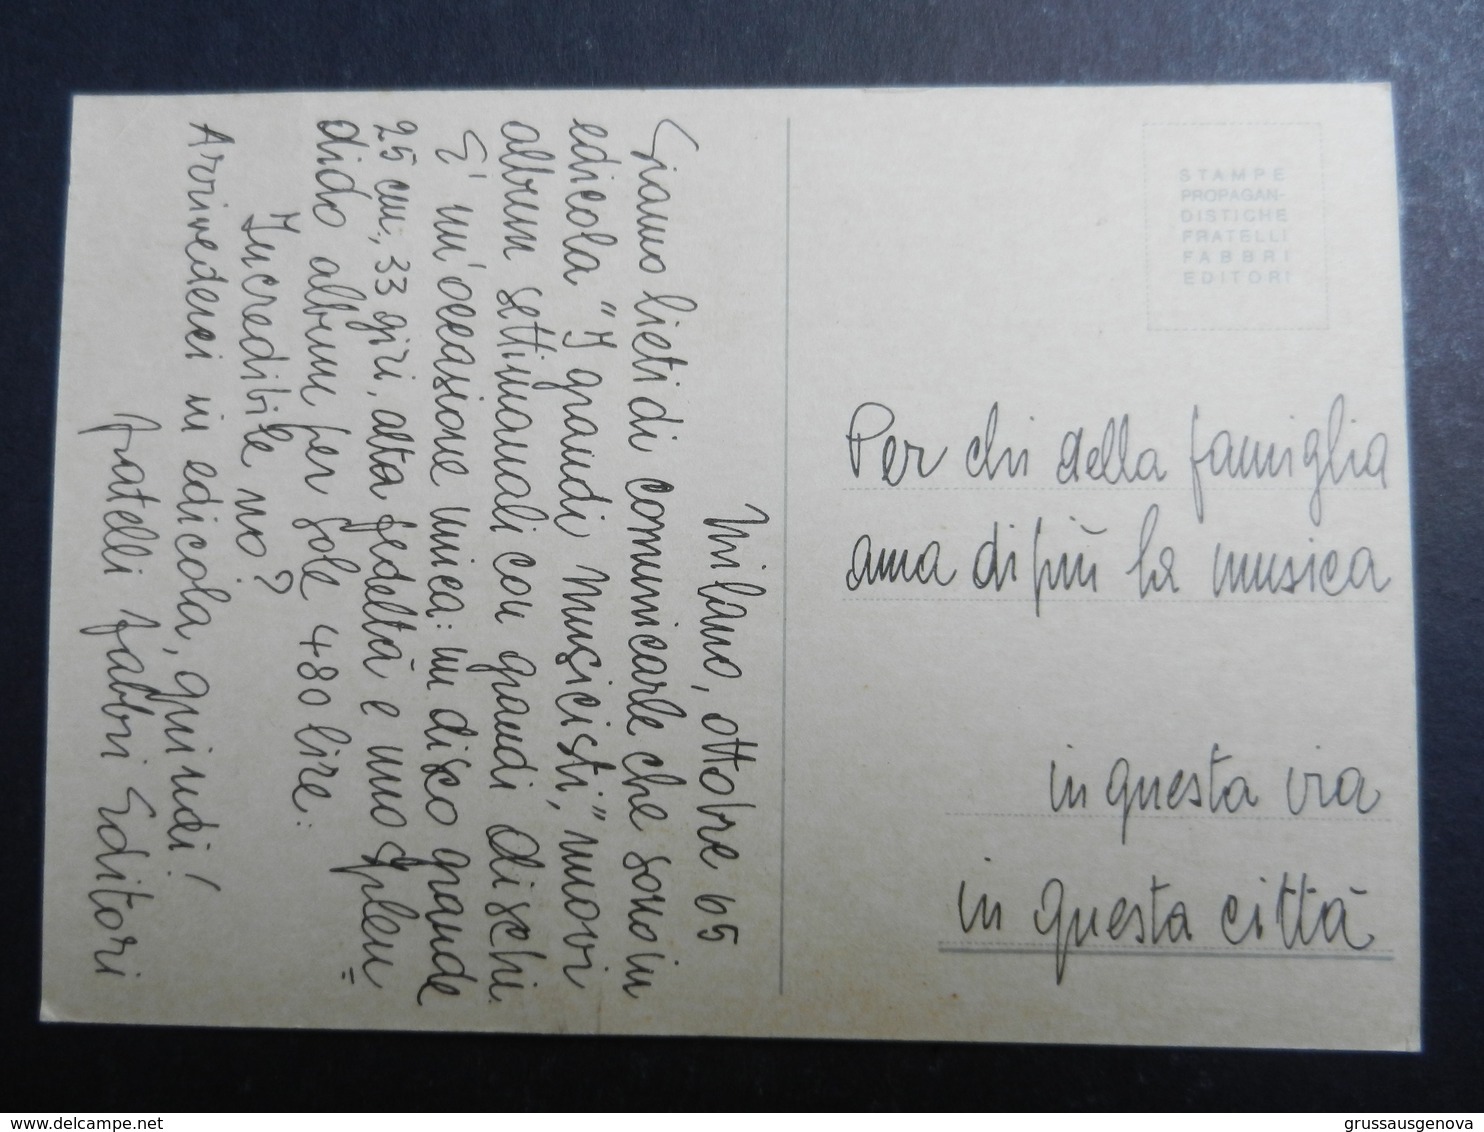 Milano, ottobre 65
Siamo lieti di comunicarle che sono in
edicola "I grandi musicisti," nuovi
album settimanali con grandi dischi.
E' un'occasione unica: un disco grande
25 cm., 33 giri, alta fedeltà e uno splen=
dido album per sole 480 lire.
Incredibile no?
Arrivederci in edicola, quindi!
Fratelli Fabbri Editori
STAMPE
PROPAGAN-
DISTICHE
FRATELLI
FABBRI
EDITORI
Per chi della famiglia
ama di più la musica
in questa via
in questa città
www.delcampe.net
grussausgenova